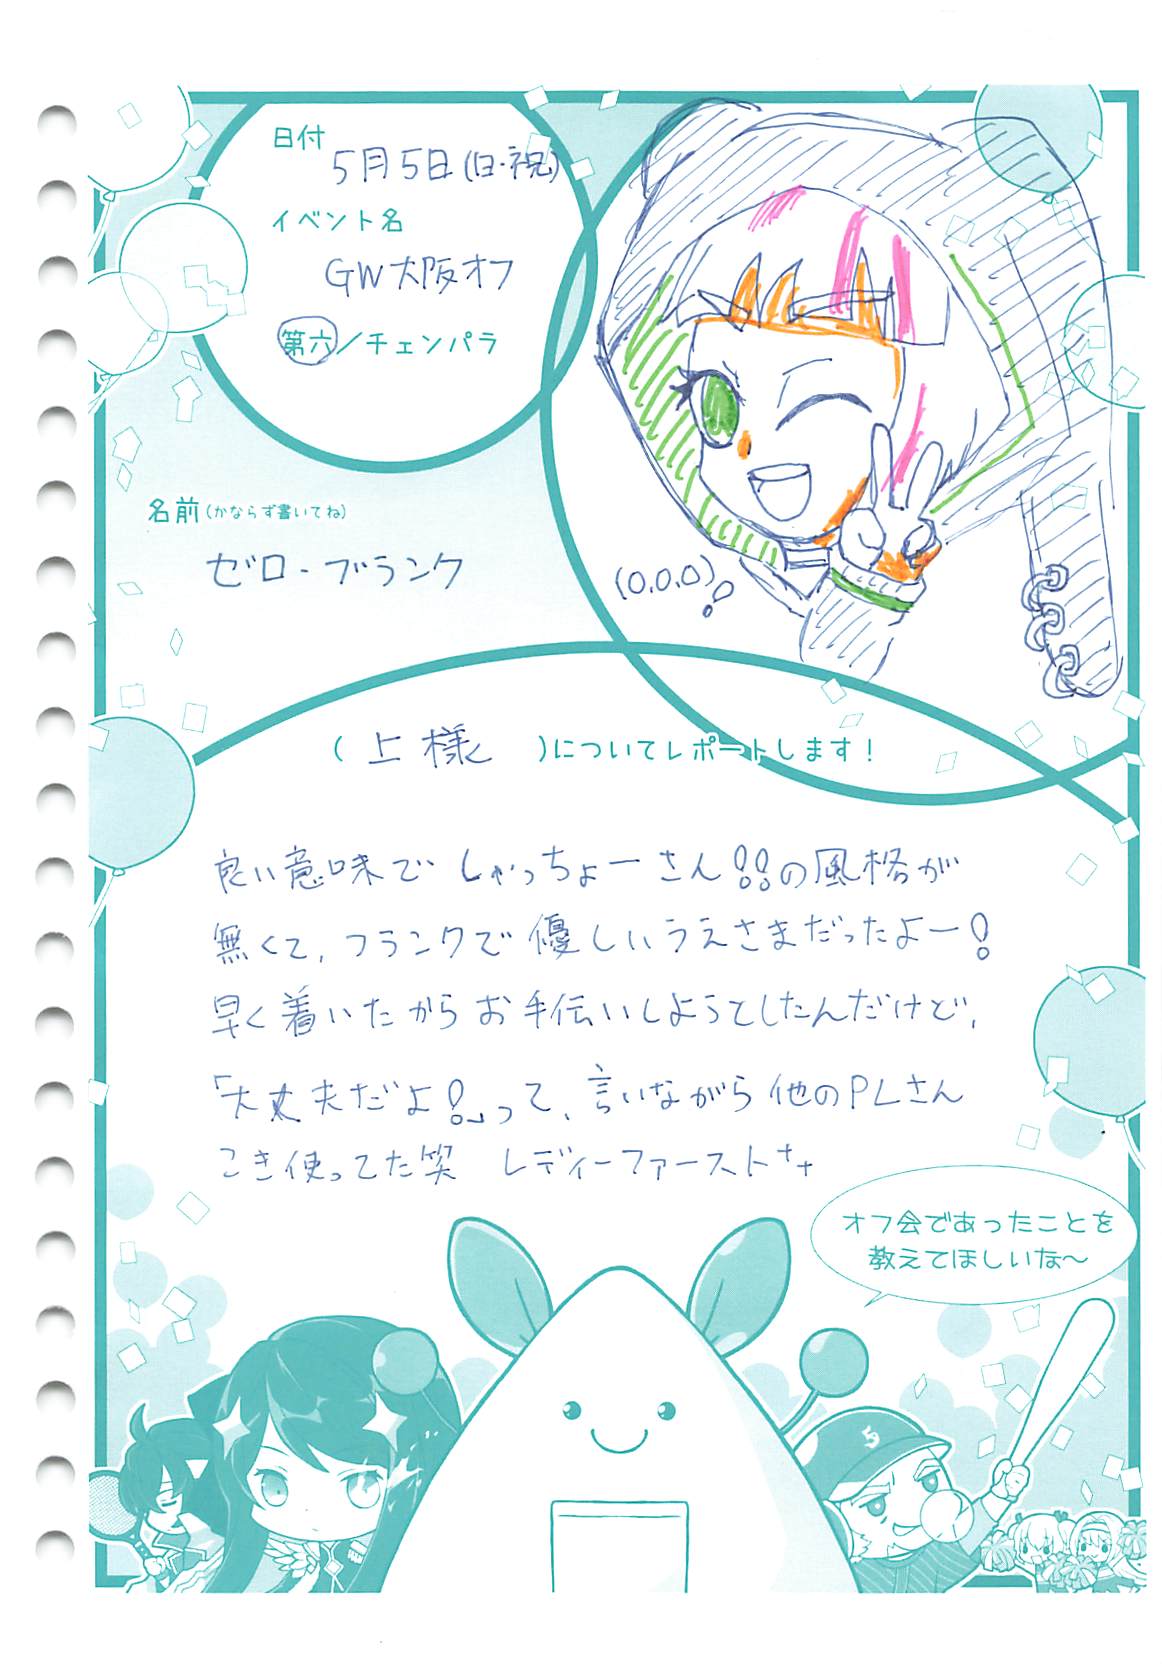 日付
5月5日(日・祝)
イベント名
GW大阪オフ
第六/チェンパラ
名前(かならず書いてね)
ゼロ・ブランク
(0,0,0)!
(上様)についてレポートします!
良い意味でしゃっちょーさん!!の風格が
無くて、フランクで優しいうえさまだったよー!
早く着いたからお手伝いしようとしたんだけど、
「大丈夫だよ!」って、言いながら他のPLさん
こき使ってた笑 レディーファースト++
オフ会であったことを
教えてほしいな〜
5